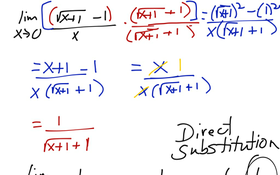 lim x→0 [(√(x+1) - 1)/x · (√(x+1) + 1)/(√(x+1) + 1)] = ((√(x+1))² - (1)²)/(x(√(x+1) + 1))
= (x+1 - 1)/(x(√(x+1) + 1)) = (x 1)/(x(√(x+1) + 1))
= 1/(√(x+1) + 1)
Direct
Substitution